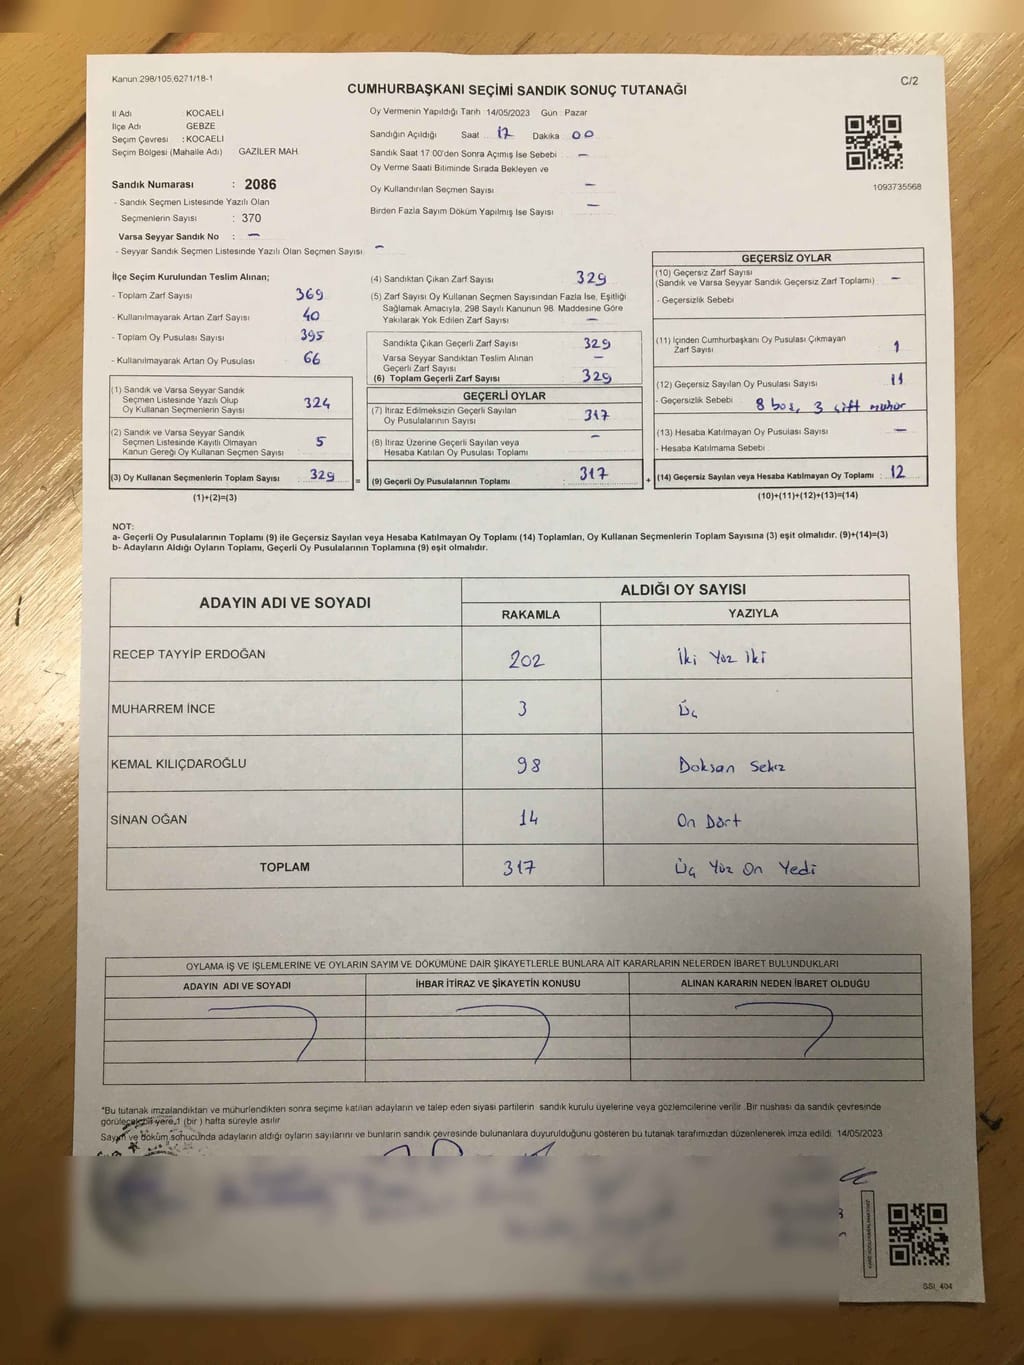 Kanun:298/105,6271/18-1
C/2
CUMHURBAŞKANI SEÇİMİ SANDIK SONUÇ TUTANAĞI
İl Adı KOCAELİ
İlçe Adı GEBZE
Seçim Çevresi : KOCAELİ
Seçim Bölgesi (Mahalle Adı) GAZİLER MAH.
Sandık Numarası : 2086
- Sandık Seçmen Listesinde Yazılı Olan
Seçmenlerin Sayısı : 370
Varsa Seyyar Sandık No : —
- Seyyar Sandık Seçmen Listesinde Yazılı Olan Seçmen Sayısı —
Oy Vermenin Yapıldığı Tarih :14/05/2023 Gün : Pazar
Sandığın Açıldığı Saat 17 Dakika 00
Sandık Saat 17:00'den Sonra Açılmış İse Sebebi —
Oy Verme Saati Bitiminde Sırada Bekleyen ve
Oy Kullandırılan Seçmen Sayısı —
Birden Fazla Sayım Döküm Yapılmış İse Sayısı —
1093735568
İlçe Seçim Kurulundan Teslim Alınan;
- Toplam Zarf Sayısı 369
- Kullanılmayarak Artan Zarf Sayısı 40
- Toplam Oy Pusulası Sayısı 395
- Kullanılmayarak Artan Oy Pusulası 66
(1) Sandık ve Varsa Seyyar Sandık
Seçmen Listesinde Yazılı Olup
Oy Kullanan Seçmenlerin Sayısı 324
(2) Sandık ve Varsa Seyyar Sandık
Seçmen Listesinde Kayıtlı Olmayan
Kanun Gereği Oy Kullanan Seçmen Sayısı 5
(3) Oy Kullanan Seçmenlerin Toplam Sayısı : 329
(1)+(2)=(3)
(4) Sandıktan Çıkan Zarf Sayısı 329
(5) Zarf Sayısı Oy Kullanan Seçmen Sayısından Fazla İse, Eşitliği
Sağlamak Amacıyla, 298 Sayılı Kanunun 98. Maddesine Göre
Yakılarak Yok Edilen Zarf Sayısı —
Sandıkta Çıkan Geçerli Zarf Sayısı 329
Varsa Seyyar Sandıktan Teslim Alınan
Geçerli Zarf Sayısı —
(6) Toplam Geçerli Zarf Sayısı 329
GEÇERLİ OYLAR
(7) İtiraz Edilmeksizin Geçerli Sayılan
Oy Pusulalarının Sayısı 317
(8) İtiraz Üzerine Geçerli Sayılan veya
Hesaba Katılan Oy Pusulası Toplamı —
= (9) Geçerli Oy Pusulalarının Toplamı : 317 +
GEÇERSİZ OYLAR
(10) Geçersiz Zarf Sayısı
(Sandık ve Varsa Seyyar Sandık Geçersiz Zarf Toplamı) —
- Geçersizlik Sebebi
(11) İçinden Cumhurbaşkanı Oy Pusulası Çıkmayan
Zarf Sayısı 1
(12) Geçersiz Sayılan Oy Pusulası Sayısı 11
- Geçersizlik Sebebi 8 boş, 3 çift mühür
(13) Hesaba Katılmayan Oy Pusulası Sayısı —
- Hesaba Katılmama Sebebi
(14) Geçersiz Sayılan veya Hesaba Katılmayan Oy Toplamı : 12
(10)+(11)+(12)+(13)=(14)
NOT:
a- Geçerli Oy Pusulalarının Toplamı (9) ile Geçersiz Sayılan veya Hesaba Katılmayan Oy Toplamı (14) Toplamları, Oy Kullanan Seçmenlerin Toplam Sayısına (3) eşit olmalıdır. (9)+(14)=(3)
b- Adayların Aldığı Oyların Toplamı, Geçerli Oy Pusulalarının Toplamına (9) eşit olmalıdır.
ADAYIN ADI VE SOYADI
ALDIĞI OY SAYISI
RAKAMLA YAZIYLA
RECEP TAYYİP ERDOĞAN 202 İki Yüz İki
MUHARREM İNCE 3 Üç
KEMAL KILIÇDAROĞLU 98 Doksan Sekiz
SİNAN OĞAN 14 On Dört
TOPLAM 317 Üç Yüz On Yedi
OYLAMA İŞ VE İŞLEMLERİNE VE OYLARIN SAYIM VE DÖKÜMÜNE DAİR ŞİKAYETLERLE BUNLARA AİT KARARLARIN NELERDEN İBARET BULUNDUKLARI
ADAYIN ADI VE SOYADI İHBAR İTİRAZ VE ŞİKAYETİN KONUSU ALINAN KARARIN NEDEN İBARET OLDUĞU
*Bu tutanak imzalandıktan ve mühürlendikten sonra seçime katılan adayların ve talep eden siyasi partilerin sandık kurulu üyelerine veya gözlemcilerine verilir. Bir nüshası da sandık çevresinde
görülecek bir yere 1 (bir) hafta süreyle asılır.
Sayım ve döküm sonucunda adayların aldığı oyların sayılarını ve bunların sandık çevresinde bulunanlara duyurulduğunu gösteren bu tutanak tarafımızdan düzenlenerek imza edildi. 14/05/2023
SSI_404